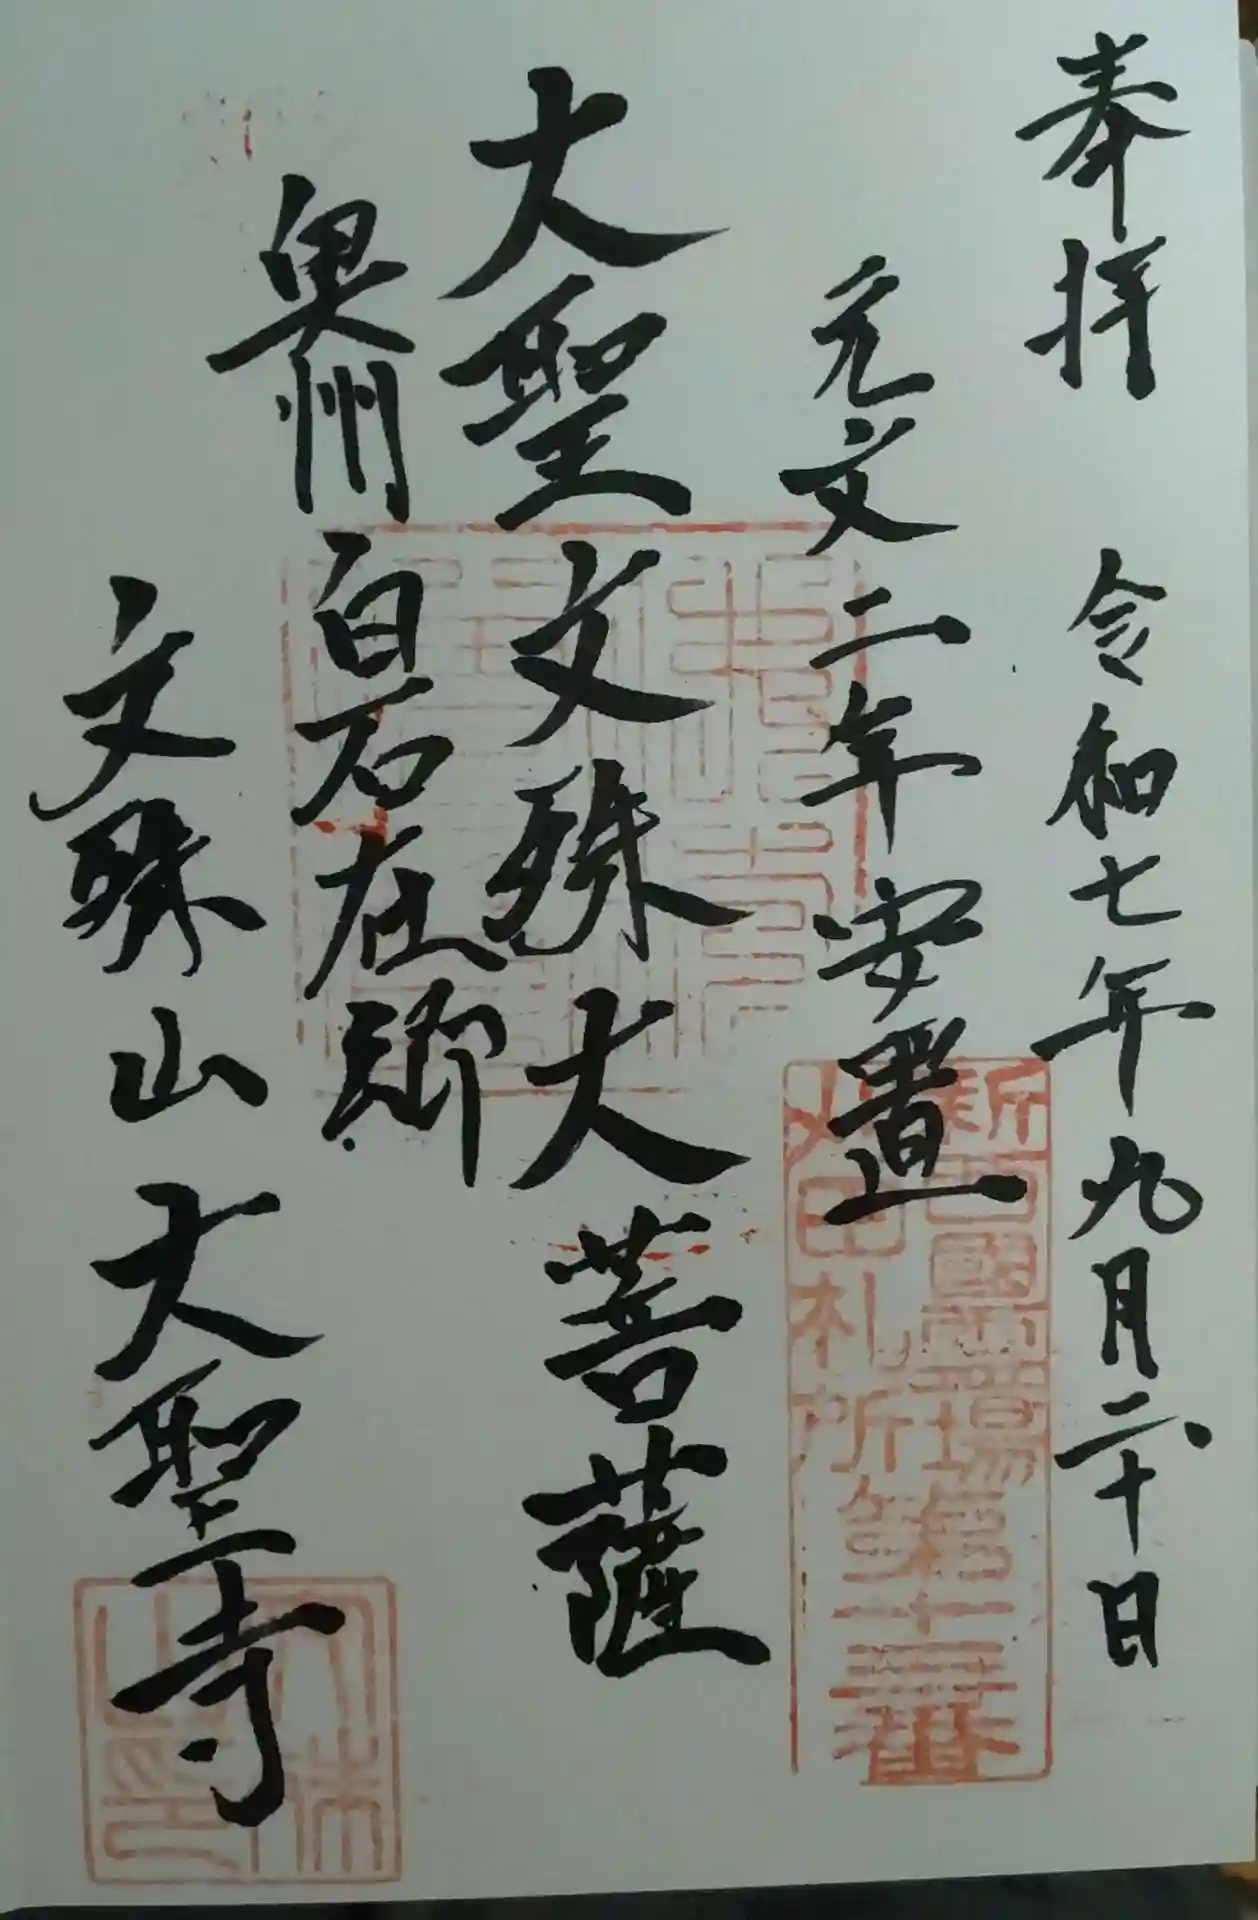 奉拝 令和七年九月二十日
元文二年安置
大聖文殊大菩薩
奥州白石在郷
文殊山大聖寺
新西國霊場
札所第十三番